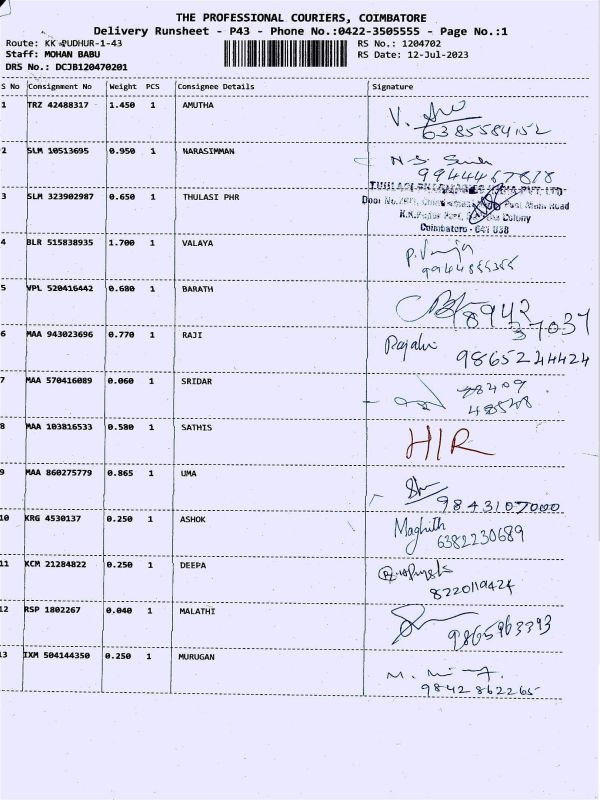 THE PROFESSIONAL COURIERS, COIMBATORE
Delivery Runsheet - P43 - Phone No.:0422-3505555 - Page No.:1
Route: KK PUDHUR-1-43 RS No.: 1204702
Staff: MOHAN BABU RS Date: 12-Jul-2023
DRS No.: DCJB120470201
S No Consignment No Weight PCS Consignee Details Signature
1 TRZ 42488317 1.450 1 AMUTHA
6385584152
2 SLM 10513695 0.950 1 NARASIMMAN N.S.
9944467878
3 SLM 323902987 0.650 1 THULASI PHR THULASI PHARMACIES INDIA PVT. LTD
Door No. Road
Colony
Coimbatore - 641 038
4 BLR 515838935 1.700 1 VALAYA
9944855355
5 VPL 520416442 0.680 1 BARATH 8942
37037
6 MAA 943023696 0.770 1 RAJI
9865224424
7 MAA 570416089 0.060 1 SRIDAR
8 MAA 103816533 0.580 1 SATHIS HIR
9 MAA 860275779 0.865 1 UMA
9843107000
10 KRG 4530137 0.250 1 ASHOK Maghith
6382230689
11 KCM 21284822 0.250 1 DEEPA
8220119424
12 RSP 1802267 0.040 1 MALATHI
9865963393
13 IXM 504144350 0.250 1 MURUGAN
9842862265